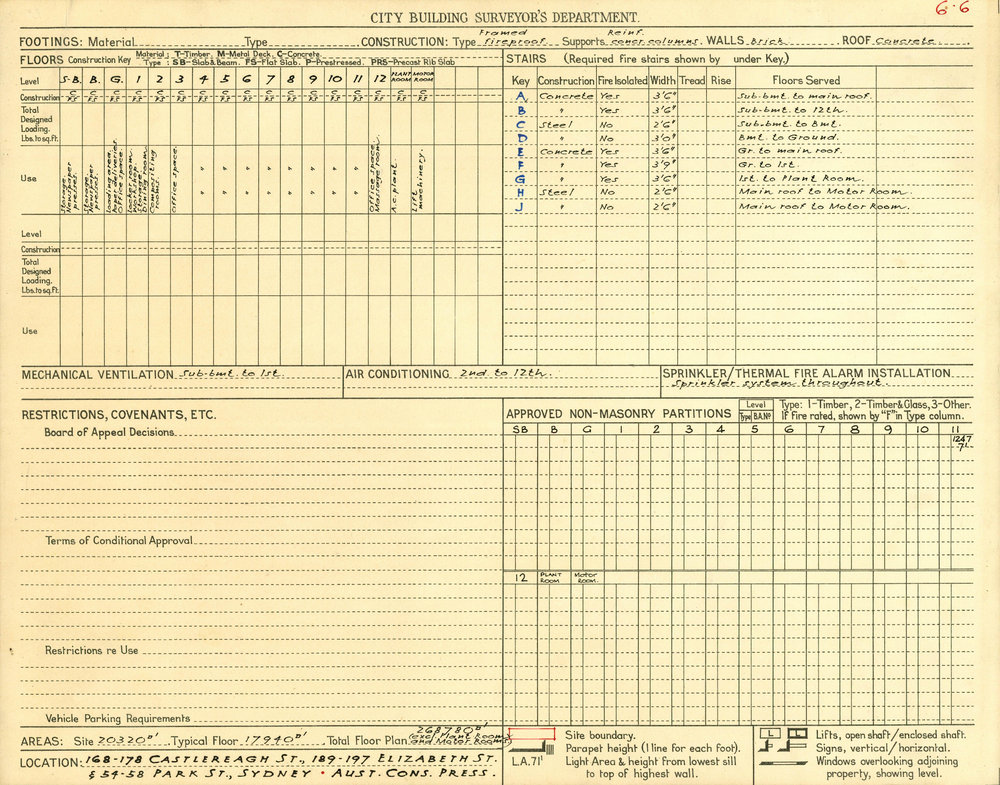 6·6
CITY BUILDING SURVEYOR'S DEPARTMENT.
FOOTINGS: Material Type CONSTRUCTION: Type Framed fireproof Supports Reinf. concr. columns. WALLS Brick ROOF Concrete
FLOORS Construction Key Material; T-Timber, M-Metal Deck, C-Concrete.
Type : SB-Slab&Beam. FS-Flat Slab. P-Prestressed. PRS-Precast Rib Slab
Level S-B. B. G. 1 2 3 4 5 6 7 8 9 10 11 12 PLANT ROOM MOTOR ROOM
Construction C C C C C C C C C C C C C C C C C
F.S F.S F.S F.S F.S F.S F.S F.S F.S F.S F.S F.S F.S F.S F.S F.S F.S
Total
Designed
Loading.
Lbs.to sq.ft.
Use
Storage.
Newspaper
presses.
Storage.
Newspaper
presses.
Loading area.
Paper deliveries.
Office space.
Locker room.
Workshop.
Stores.
Dining room.
Compositing
rooms.
Office space.
" " " " " " " "
" " " " " " " "
Office space.
Massage room.
A.c. plant.
Lift
machinery.
Level
Construction
Total
Designed
Loading.
Lbs.to sq.ft.
Use
STAIRS (Required fire stairs shown by under Key.)
Key Construction Fire Isolated Width Tread Rise Floors Served
A Concrete Yes 3'6" Sub-bmt. to main roof.
B " Yes 3'6" Sub-bmt. to 12th.
C Steel No 2'6" Sub-bmt. to Bmt.
D " No 3'0" Bmt. to Ground.
E Concrete Yes 3'6" Gr. to main roof.
F " Yes 3'9" Gr. to 1st.
G " Yes 3'6" 1st. to Plant Room.
H Steel No 2'6" Main roof to Motor Room.
J " No 2'6" Main roof to Motor Room.
MECHANICAL VENTILATION Sub-bmt. to 1st.
AIR CONDITIONING 2nd to 12th.
SPRINKLER/THERMAL FIRE ALARM INSTALLATION
Sprinkler system throughout.
RESTRICTIONS, COVENANTS, ETC.
Board of Appeal Decisions
Terms of Conditional Approval
Restrictions re Use
Vehicle Parking Requirements
APPROVED NON-MASONRY PARTITIONS Level
Type B.A.Nº
Type: 1-Timber, 2-Timber&Glass, 3-Other.
If Fire rated, shown by "F" in Type column.
SB B G 1 2 3 4 5 6 7 8 9 10 11
1247
71
12 PLANT ROOM MOTOR ROOM.
AREAS: Site 20320□' Typical Floor 17940□' Total Floor Plan 268780□'
(exc. Plant Room
and Motor Room)
LOCATION: 168-178 CASTLEREAGH ST., 189-197 ELIZABETH ST.
& 54-58 PARK ST., SYDNEY • AUST. CONS. PRESS.
Site boundary.
Parapet height (1 line for each foot).
L.A.71' Light Area & height from lowest sill
to top of highest wall.
L L Lifts, open shaft/enclosed shaft.
Signs, vertical/horizontal.
Windows overlooking adjoining
property, showing level.